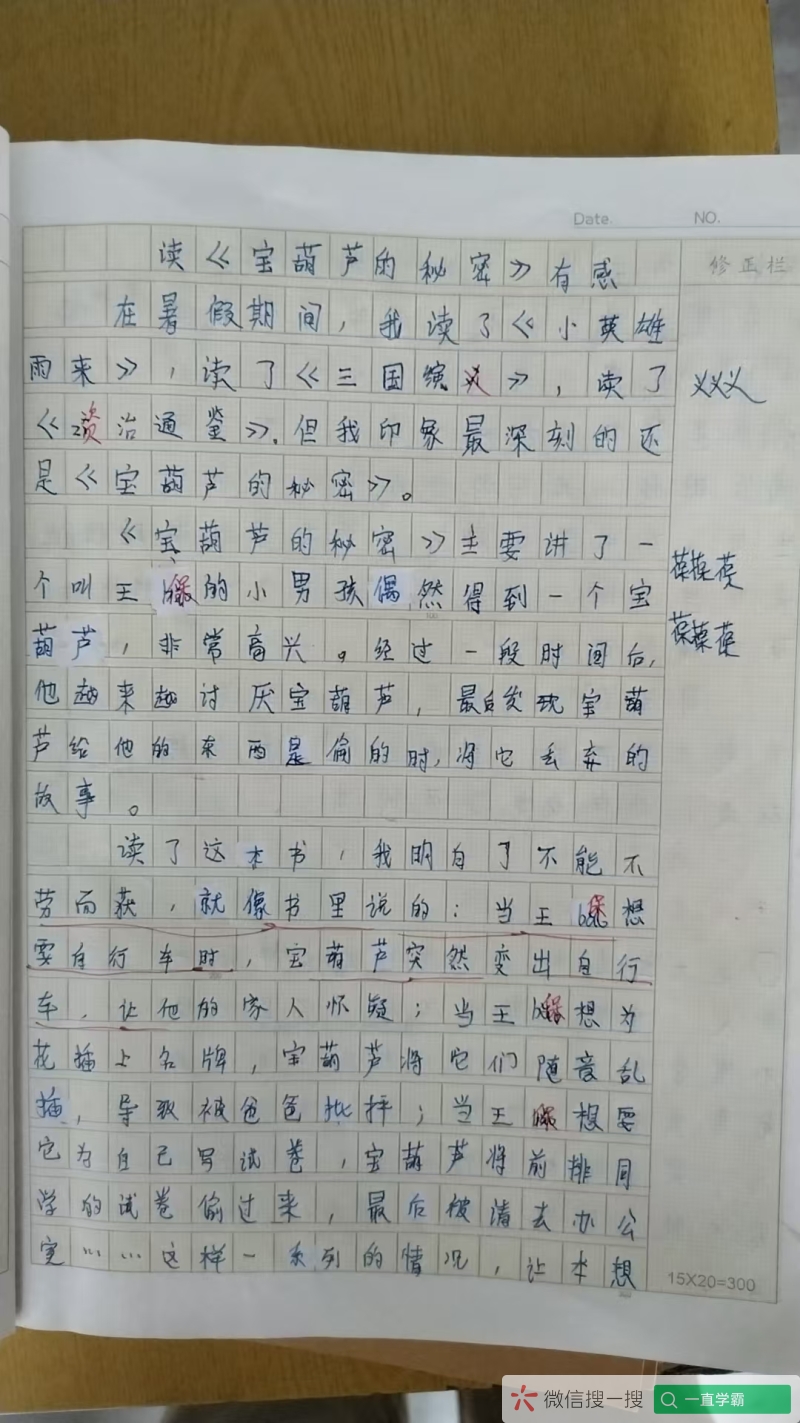 Date. NO.
读《宝葫芦的秘密》有感
修正栏
在暑假期间，我读了《小英雄
雨来》，读了《三国演义》，读了
义义义
《资治通鉴》，但我印象最深刻的还
是《宝葫芦的秘密》。
《宝葫芦的秘密》主要讲了一
个叫王葆的小男孩偶然得到一个宝
葆葆葆
葫芦，非常高兴。经过一段时间后，
葆葆葆
他越来越讨厌宝葫芦，最后发现宝葫
芦给他的东西是偷的时，将它丢弃的
故事。
读了这本书，我明白了不能不
劳而获，就像书里说的：当王葆想
要自行车时，宝葫芦突然变出自行
车，让他的家人怀疑；当王葆想为
花插上名牌，宝葫芦将它们随意乱
插，导致被爸爸批评；当王葆想要
它为自己写试卷，宝葫芦将前排同
学的试卷偷过来，最后被请去办公
室……这样一系列的情况，让本想
15X20=300
微信搜一搜 一直学霸